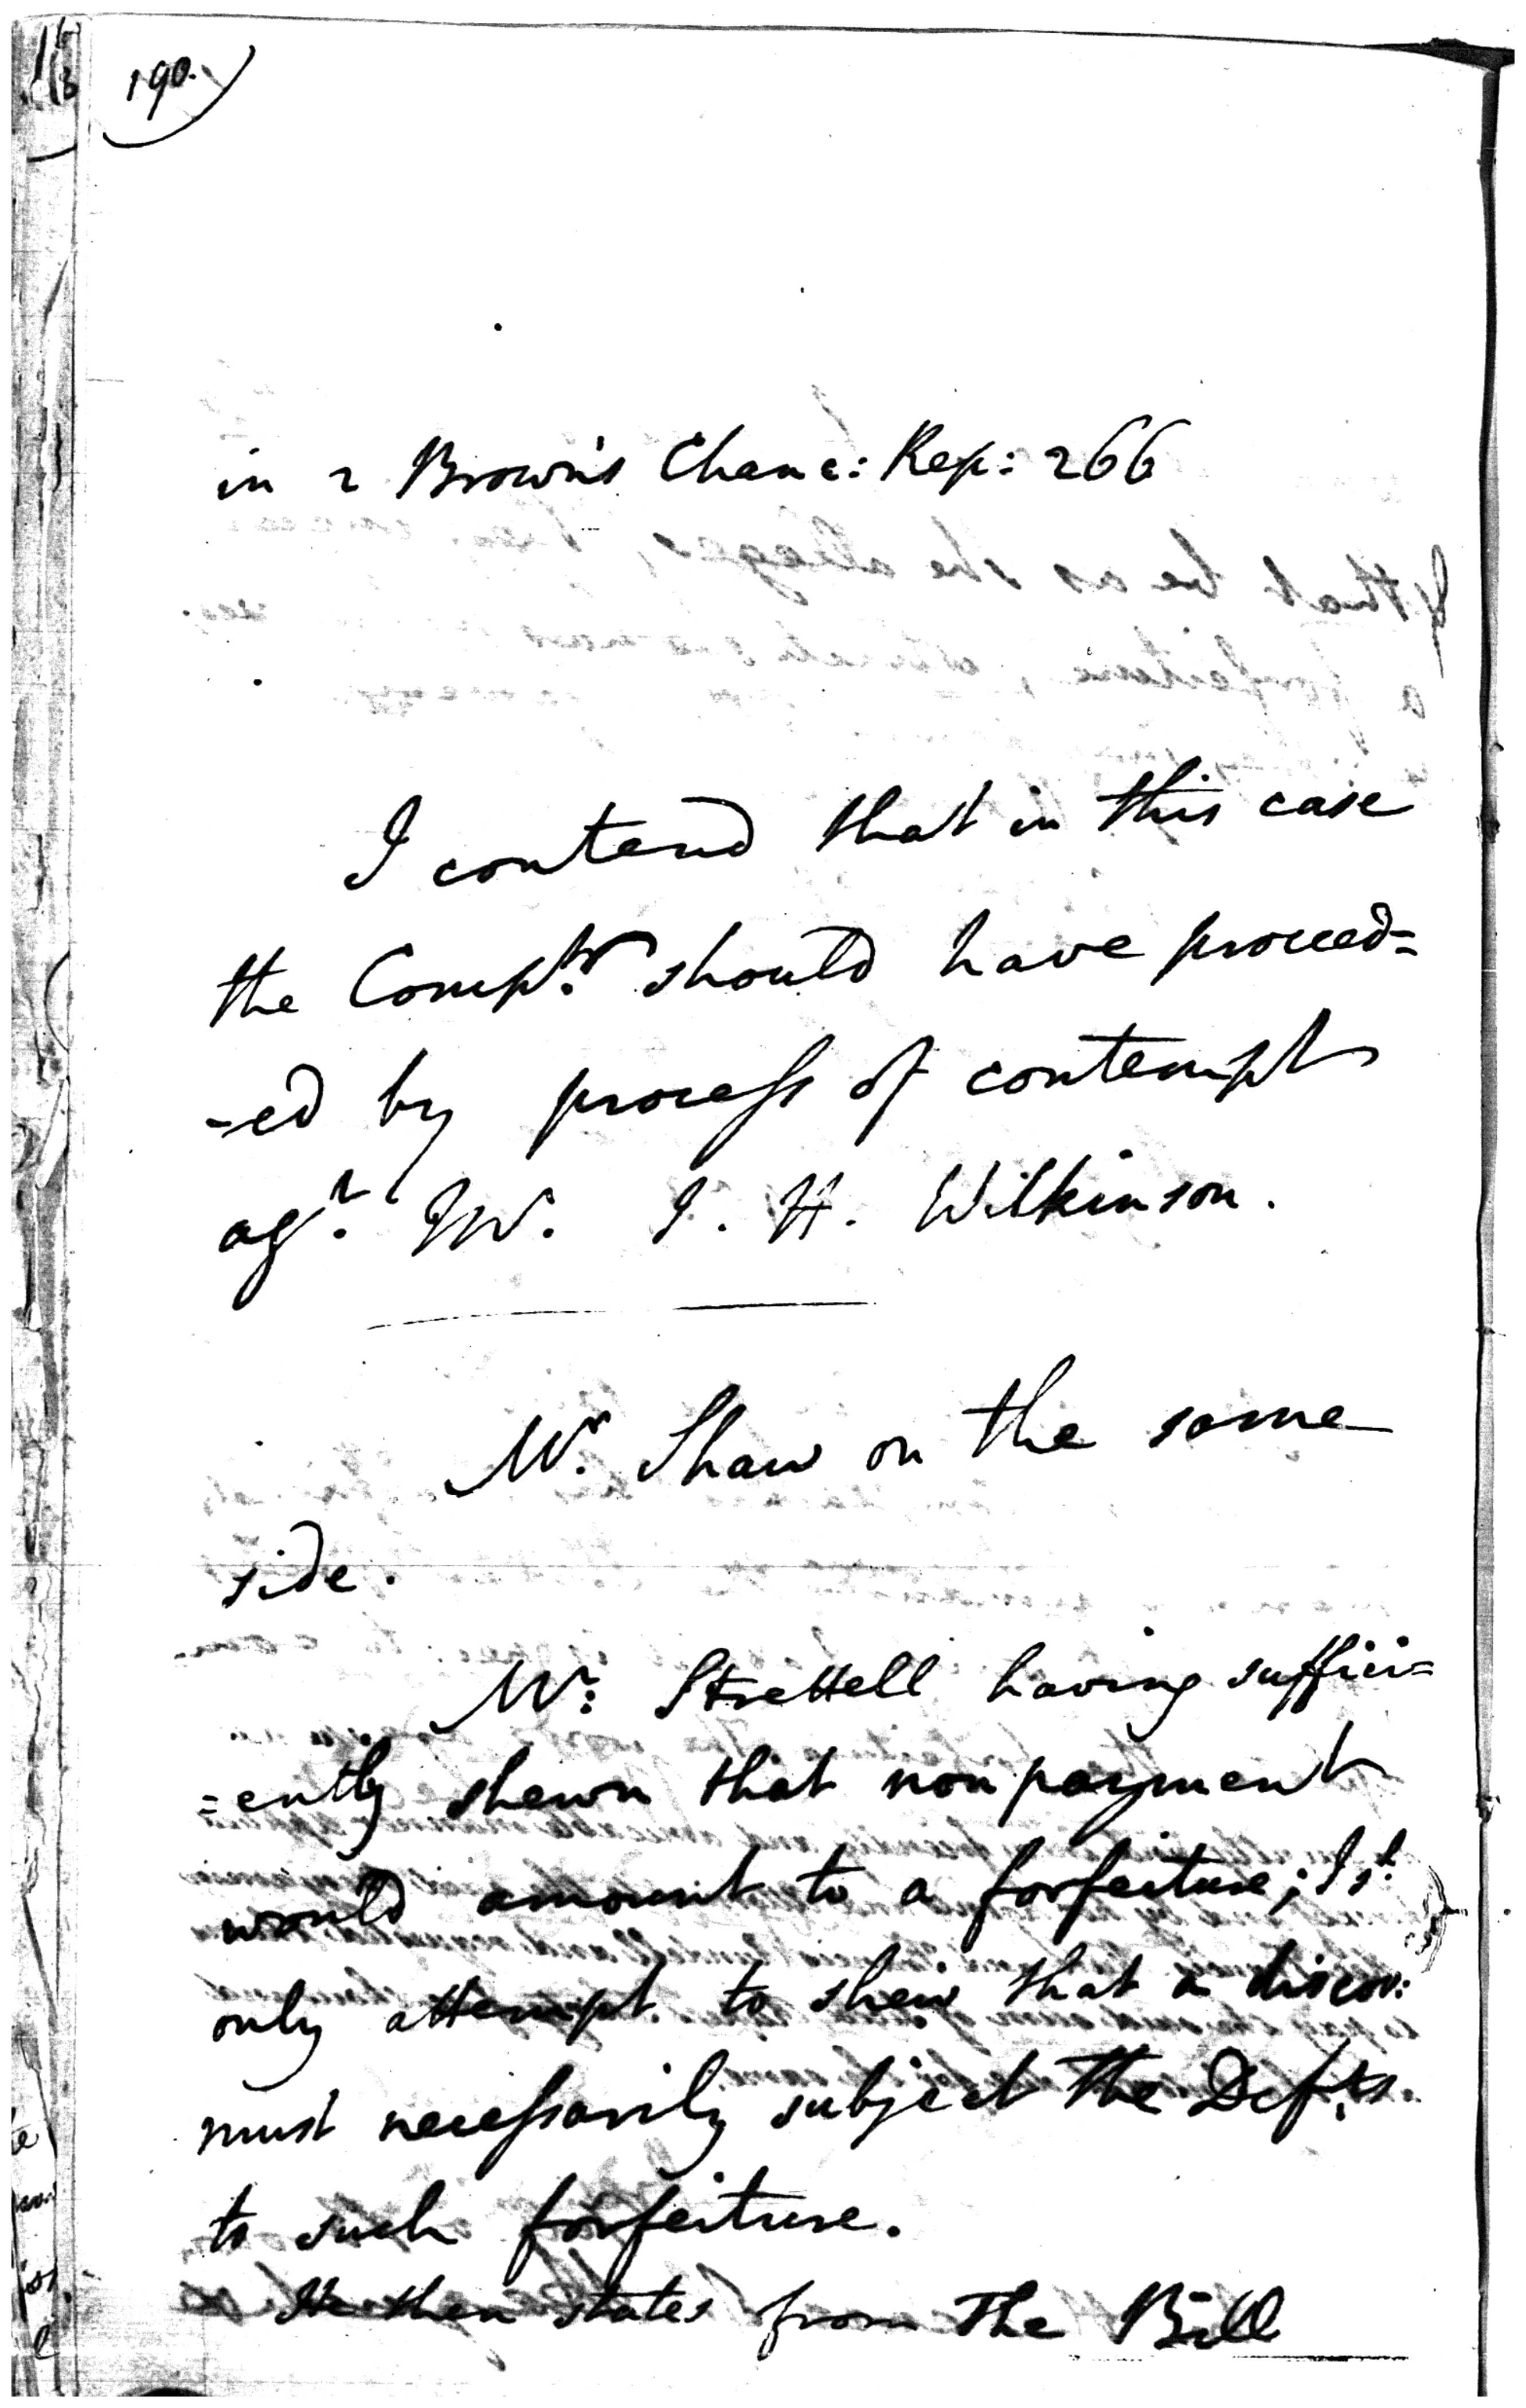 190.
in 2 Brown's Chanc: Rep: 266
I contend that in this case
the Compt. should have proceed=
-ed by process of contempt
agt. Mr. I. H. Wilkinson.
Mr. Shaw on the same
side.
Mr. Strettell having suffici=
=ently shewn that nonpayment
would amount to a forfeiture; I sl.
only attempt to shew that a discov:
must necessarily subject the Defts.
to such forfeiture.
He then states from The Bill